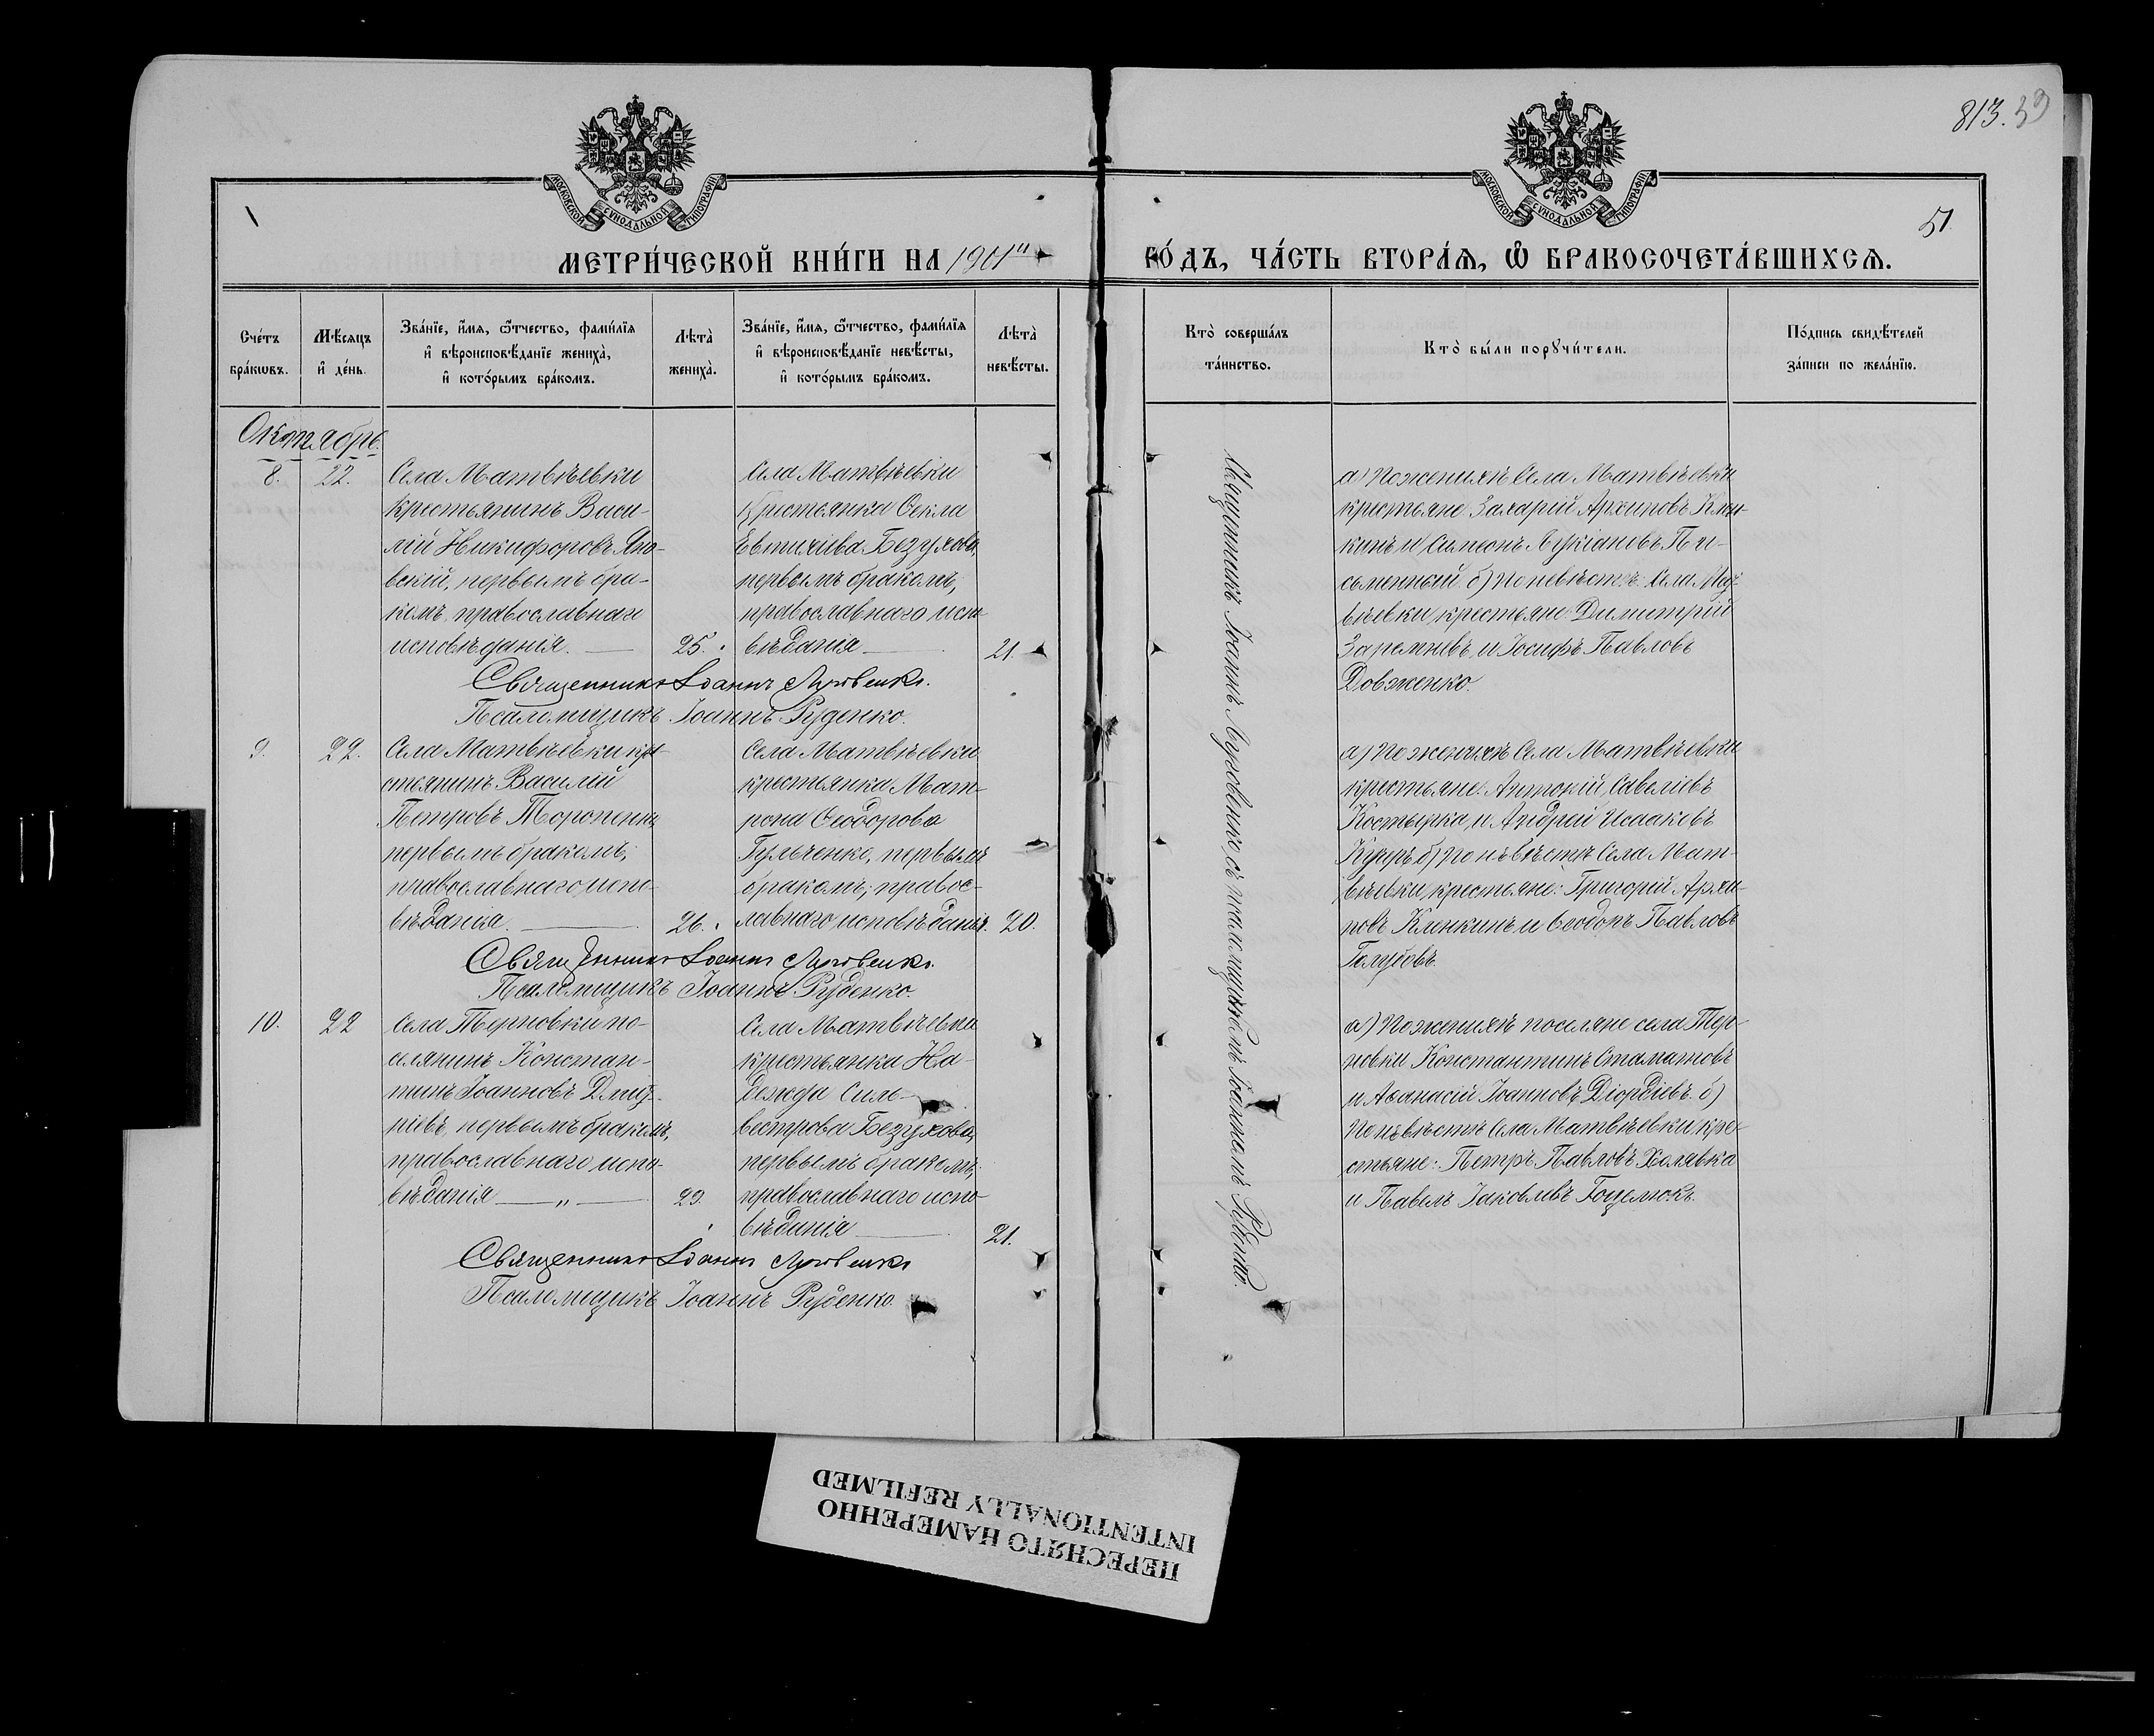 813. 39
51.
МОСКОВСКОЙ СѴНОДАЛЬНОЙ ТИПОГРАФІИ
МОСКОВСКОЙ СѴНОДАЛЬНОЙ ТИПОГРАФІИ
МЕТРИ́ЧЕСКОЙ КНИ́ГИ НА 1901й
ГО́ДЪ, ЧА́СТЬ ВТОРА́Ѧ, Ѽ БРАКОСОЧЕТА́ВШИХСѦ.
Сче́тъ бра́кѡвъ.
Мѣ́сѧцъ и҆ де́нь.
Зва́нїе, и҆́мѧ, ѻ҆́тчество, фами́лїѧ и҆ вѣроисповѣ́данїе жениха̀, и҆ кото́рымъ бра́комъ.
Лѣта̀ жениха̀.
Зва́нїе, и҆́мѧ, ѻ҆́тчество, фами́лїѧ и҆ вѣроисповѣ́данїе невѣ́сты, и҆ кото́рымъ бра́комъ.
Лѣта̀ невѣ́сты.
Кто̀ соверша́лъ та́инство.
Кто̀ бы́ли порꙋчи́тели.
По́дпись свидѣ́телей за́писи по жела́нїю.
Октябрь.
8.
22.
Села Матвѣевки
крестьянинъ Васи-
лій Никифоровъ Яно-
вскій, первымъ бра-
комъ, православнаго
исповѣданія.
25.
Села Матвѣевки
крестьянка Ѳекла
Евтихіева Безухова
первымъ бракомъ,
православнаго испо-
вѣданія
21.
Священникъ Іоаннъ Луговенко.
Псаломщикъ Іоаннъ Руденко.
а) По женихѣ Села Матвѣевки
крестьяне Захарій Архиповъ Клин-
кинъ и Симеонъ Лукіановъ Пи-
сьменный б) по невѣстѣ: Села Мат-
вѣевки, крестьяне: Димитрій
и Іосифъ Павловъ
Довженко.
Священникъ Іоаннъ Луговенко, съ псаломщикомъ Іоанномъ Руденко.
9.
22.
Села Матвѣевки кре-
стьянинъ Василій
Петровъ Торопенко,
первымъ бракомъ;
православнаго испо-
вѣданія.
26.
Села Матвѣевки
крестьянка Мат-
рона Ѳеодорова
Гульченко, первымъ
бракомъ; правос-
лавнаго исповѣданія.
20.
Священникъ Іоаннъ Луговенко.
Псаломщикъ Іоаннъ Руденко.
а) По женихѣ Села Матвѣевки
крестьяне: Антоній Савеліевъ
Костырка, и Андрей Исааковъ
б) по невѣстѣ Села Мат-
вѣевки, крестьяне: Григорій Архи-
повъ Клинкинъ и Ѳеодоръ Павловъ
Голубовъ.
10.
22
Села Терновки по-
селянинъ Констан-
тинъ Іоанновъ Дмит-
ріевъ, первымъ бракомъ,
православнаго испо-
вѣданія — „ —
23.
Села Матвѣевки
крестьянка На-
дежда Силь-
вестрова Безухова,
первымъ бракомъ;
православнаго испо-
вѣданія
21.
Священникъ Іоаннъ Луговенко
Псаломщикъ Іоаннъ Руденко.
а) По женихѣ поселяне села Тер-
новки Константинъ Стаматовъ
и Аѳанасій Іоанновъ Діордіевъ. б)
По невѣстѣ Села Матвѣевки кре-
стьяне: Петръ Павловъ Халявка
и Павелъ Іаковлевъ Гоцелюкъ.
ПЕРЕСНЯТО НАМЕРЕННО
INTENTIONALLY REFILMED